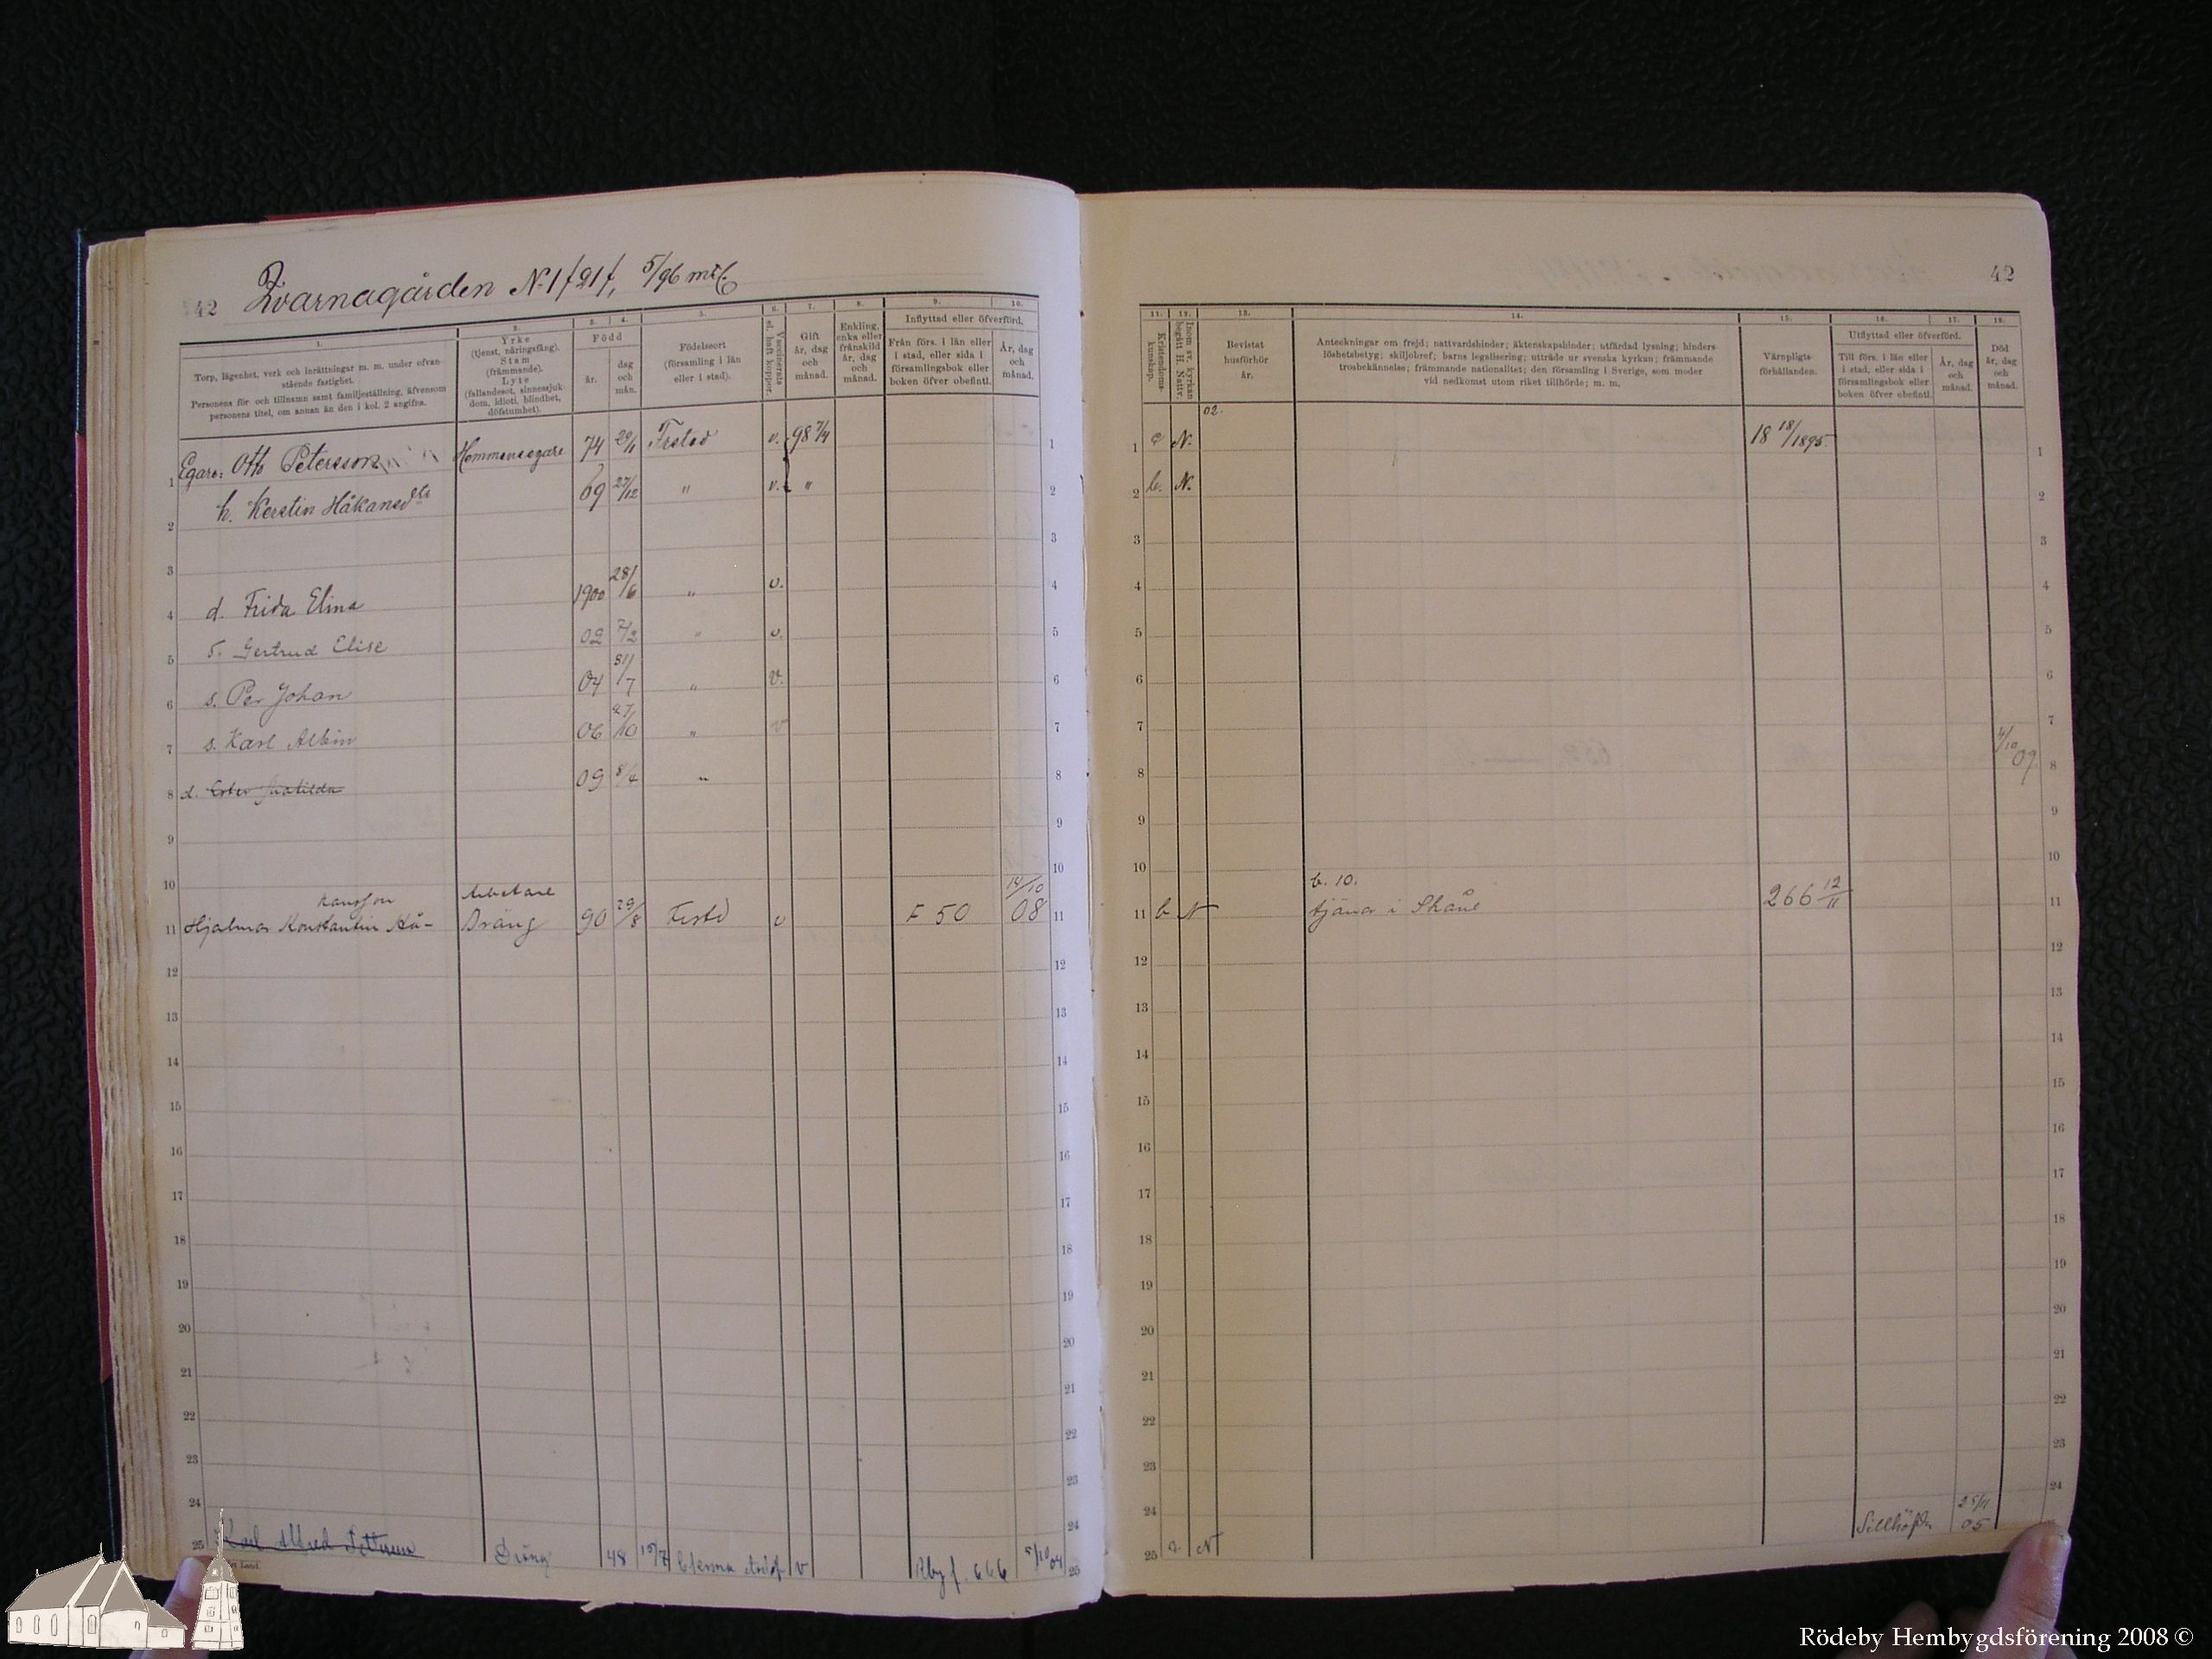 42 Qvarnagården N. 1/21, 5/96 mtl
1. 2. 3. 4. 5. 6. 7. 8. 9. 10.
Torp, lägenhet, verk och inrättningar m. m. under ofvan-
stående fastighet.
Personens för- och tillnamn samt familjeställning, äfvensom
personens titel, om annan än den i kol. 2 angifna.
Yrke
(tjenst, näringsfång).
Stam
(främmande).
Lyte
(fallandesot, sinnessjuk-
dom, idioti, blindhet,
döfstumhet).
Född
år.
dag
och
mån.
Födelseort
(församling i län
eller i stad).
Vaccinerats
el. haft koppor.
Gift
år, dag
och
månad.
Enkling,
enka eller
frånskild
år, dag
och
månad.
Inflyttad eller öfverförd.
Från förs. i län eller
i stad, eller sida i
församlingsbok eller
boken öfver obefintl.
År, dag
och
månad.
1 Egare: Otto Petersson Hemmansegare 74 29/1 Frstad v. 98 7/4 1
2 h. Kerstin Håkansdtr 69 27/12 " v. " 2
3 3
4 d. Frida Elina 1900 28/6 " v. 4
5 d. Gertrud Elise 02 7/2 " v. 5
6 s. Per Johan 04 31/7 " v. 6
7 s. Karl Albin 06 27/10 " v 7
8 d. Ester Matilda 09 8/4 " 8
9 9
10 10
kansson Arbetare 14/10
11 Hjalmar Konstantin Hå- Dräng 90 29/8 Frstd v F 50 08 11
12 12
13 13
14 14
15 15
16 16
17 17
18 18
19 19
20 20
21 21
22 22
23 23
24 24
25 Karl Alfred Petterson Dräng 48 15/7 v Rby f. 666 5/10 04 25
42
11. 12. 13. 14. 15. 16. 17. 18.
Kristendoms-
kunskap.
Inom sv. kyrkan
begått H. Nattv.
Bevistat
husförhör
år.
Anteckningar om frejd; nattvardshinder; äktenskapshinder; utfärdad lysning; hinders-
löshetsbetyg; skiljobref; barns legalisering; utträde ur svenska kyrkan; främmande
trosbekännelse; främmande nationalitet; den församling i Sverige, som moder
vid nedkomst utom riket tillhörde; m. m.
Värnpligts-
förhållanden.
Utflyttad eller öfverförd.
Till förs. i län eller
i stad, eller sida i
församlingsbok eller
boken öfver obefintl.
År, dag
och
månad.
Död
år, dag
och
månad.
02.
1 a N. 18 18/1895. 1
2 b. N. 2
3 3
4 4
5 5
6 6
7 7
8 4/10 09 8
9 9
10 b. 10. 10
11 b N tjänar i Skåne 266 12/11 11
12 12
13 13
14 14
15 15
16 16
17 17
18 18
19 19
20 20
21 21
22 22
23 23
24 24
25 a N Sillhöfda 25/11 05
Rödeby Hembygdsförening 2008 ©